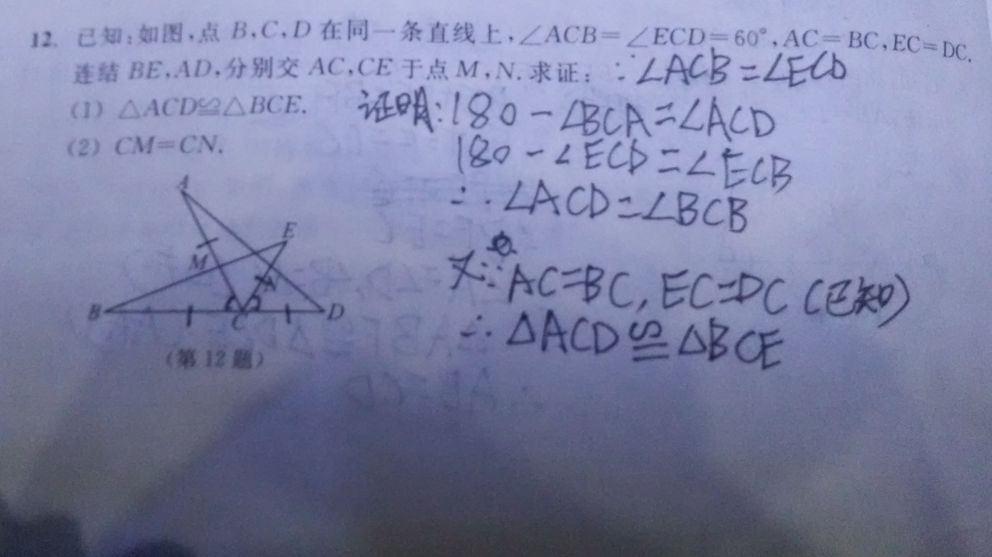 12. 已知:如图,点 B,C,D 在同一条直线上,∠ACB=∠ECD=60°,AC=BC,EC=DC.
连结 BE,AD,分别交 AC,CE 于点 M,N.求证: ∵∠ACB=∠ECD
(1) △ACD≌△BCE. 证明:180-∠BCA=∠ACD
(2) CM=CN. 180-∠ECD=∠ECB
∴∠ACD=∠BCB
又∵AC=BC,EC=DC(已知)
∴△ACD≌△BCE
A
E
M
N
B
C
D
(第12题)